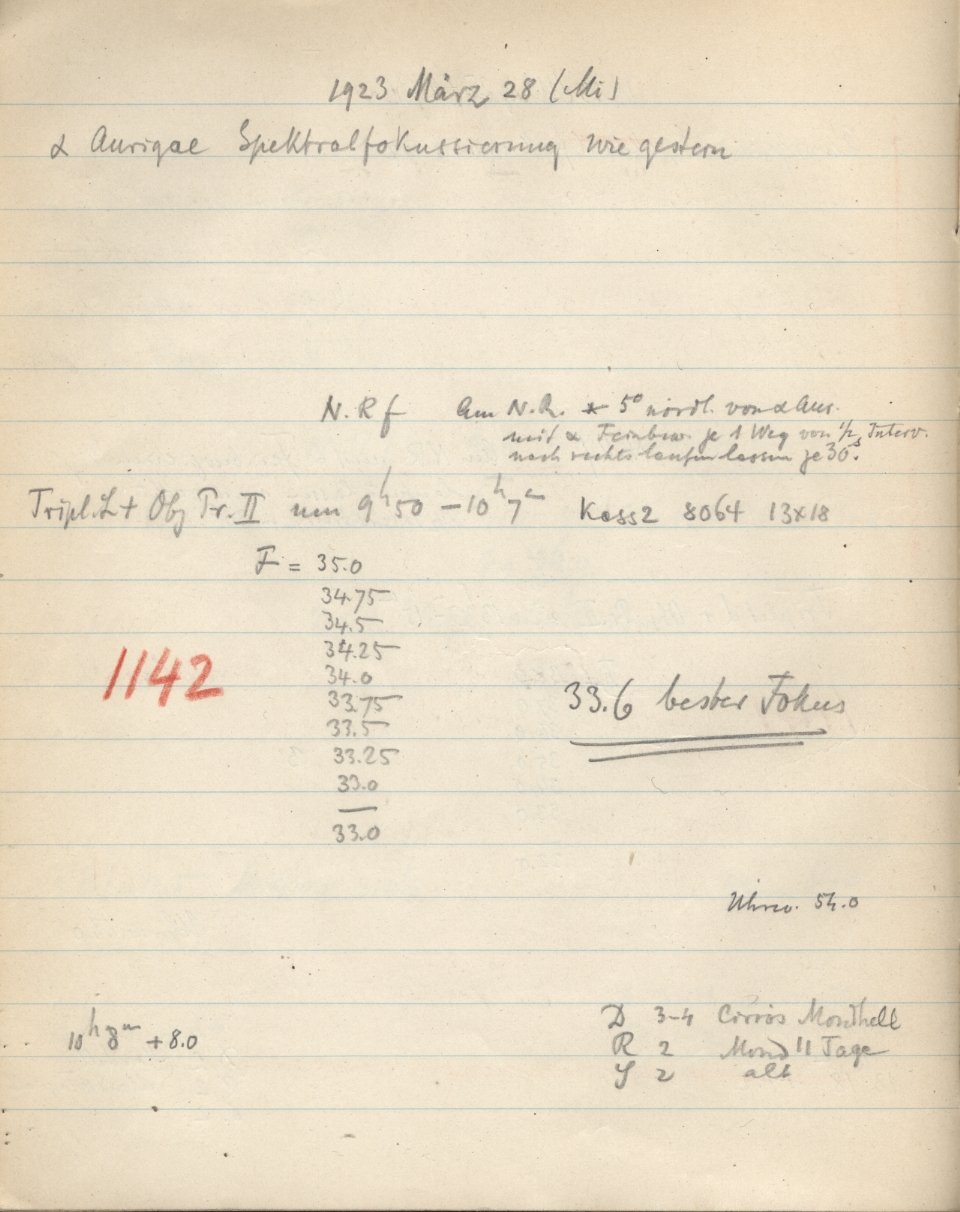 1923 März 28 (Mi)
α Aurigae Spektralfokussierung wie gestern
N.R f Am N.R. * 5° nördl. von α Aur.
mit α Feinbew. je 1 Weg von 1/2 Interv.
nach rechts laufen lassen je 30s.
Tripl. L + Obj Pr. II um 9h50 – 10h7m Kass2 8064 13x18
F = 35.0
34.75
34.5
34.25
34.0
1142
33.75
33.6 bester Fokus
33.5
33.25
33.0
33.0
Uhrw. 54.0
D 3-4 Cirrös Mondhell
10h8m +8.0
R 2 Mond 11 Tage
S 2 alt